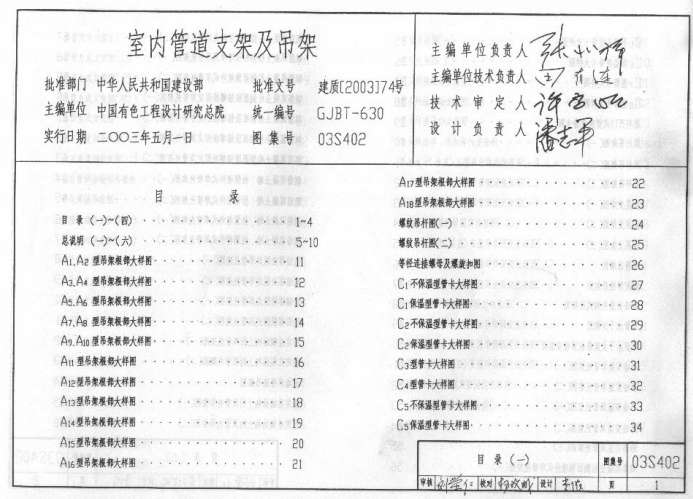 室内管道支架及吊架
批准部门 中华人民共和国建设部 批准文号 建质[2003]74号
主编单位 中国有色工程设计研究总院 统一编号 GJBT-630
实行日期 二〇〇三年五月一日 图集号 03S402
主编单位负责人
主编单位技术负责人
技术审定人
设计负责人 潘志军
目 录
目 录 (一)~(四) 1~4
总说明 (一)~(六) 5~10
A1、A2 型吊架根部大样图 11
A3、A4 型吊架根部大样图 12
A5、A6 型吊架根部大样图 13
A7、A8 型吊架根部大样图 14
A9、A10 型吊架根部大样图 15
A11 型吊架根部大样图 16
A12型吊架根部大样图 17
A13型吊架根部大样图 18
A14型吊架根部大样图 19
A15型吊架根部大样图 20
A16型吊架根部大样图 21
A17型吊架根部大样图 22
A18型吊架根部大样图 23
螺纹吊杆图(一) 24
螺纹吊杆图(二) 25
等径连接螺母及螺旋扣图 26
C1不保温型管卡大样图 27
C1保温型管卡大样图 28
C2不保温型管卡大样图 29
C2保温型管卡大样图 30
C3型管卡大样图 31
C4型管卡大样图 32
C5不保温型管卡大样图 33
C5保温型管卡大样图 34
目 录 (一) 图集号 03S402
审核 校对 设计 页 1